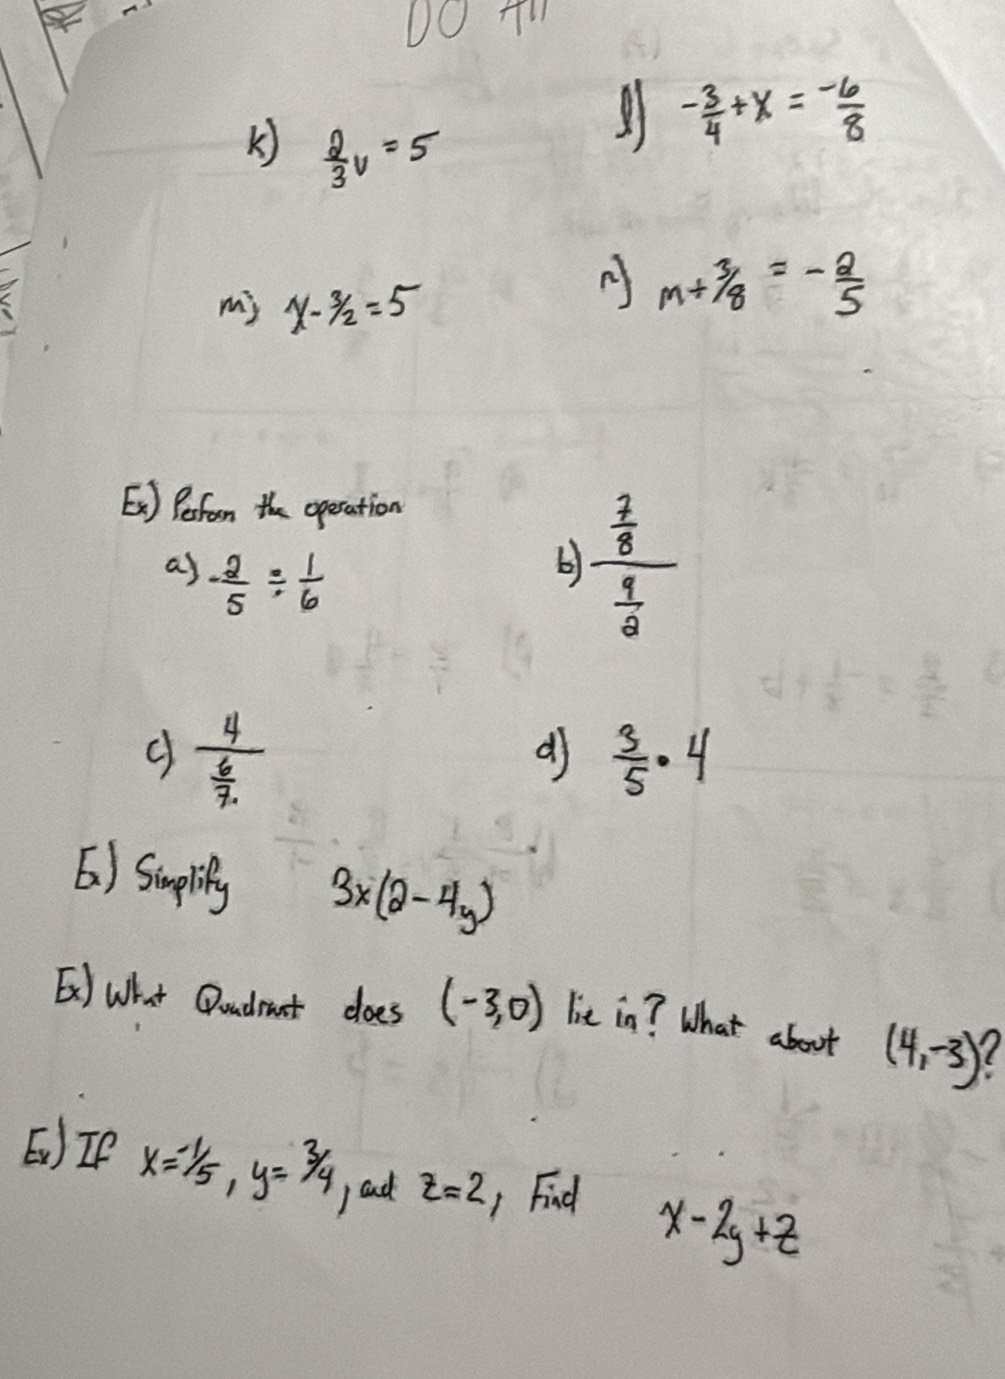 DO All
k) 2/3 v = 5
l) -3/4 + x = -6/8
m) x - 3/2 = 5
n) m + 3/8 = - 2/5
Ex) Perform the operation
a) -2/5 ÷ 1/6
b) 7/8 / 9/2
c) 4 / 6/7
d) 3/5 • 4
Ex) Simplify 3x(2-4y)
Ex) What Quadrant does (-3,0) lie in? What about (4,-3)?
Ex) If x=-1/5, y= 3/4, and z=2, Find x-2y+z